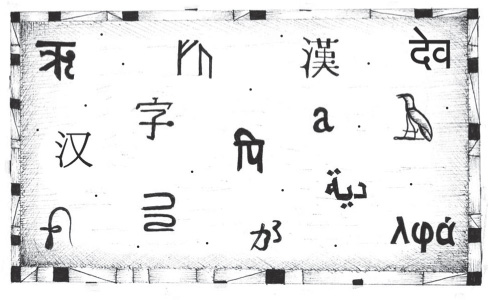 ऋ 漢 देव
字 a 𓄿
汉 पि
دية
λφά